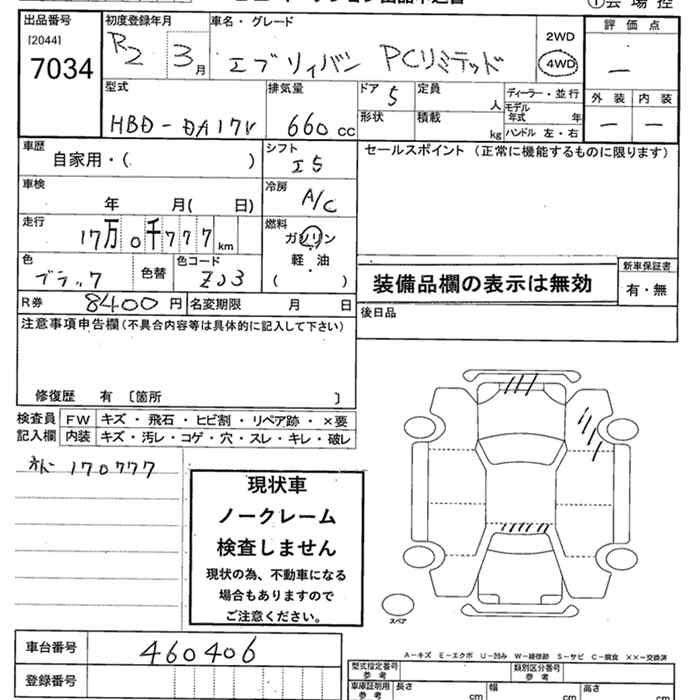 ① 会 場 控
出品番号 初度登録年月 車名・グレード 評 価 点
[2044] 2WD
7034 R2 3月 エブリイバン PCリミテッド 4WD ー
型式 排気量 ドア 5 定員 人 ディーラー・並 行 外 装 内 装
HBD-DA17V 660 cc 形状 積載 kg モデル年式 年 ー ー
ハンドル 左・右
車歴 シフト セールスポイント (正常に機能するものに限ります)
自家用・( ) I5
車検 冷房
年 月( 日) A/C
走行 燃料
17万0千777 km ガソリン
色 色替 色コード 軽 油
ブラック ZJ3 ( )
装備品欄の表示は無効 新車保証書
有・無
R券 8400 円 名変期限 月 日 後日品
注意事項申告欄(不具合内容等は具体的に記入して下さい)
修復歴 有 〔箇所 〕
検査員 FW キズ・飛石・ヒビ割・リペア跡・×要
記入欄 内装 キズ・汚レ・コゲ・穴・スレ・キレ・破レ
170777
現状車
ノークレーム
検査しません
現状の為、不動車になる
場合もありますので
ご注意ください。
スペア
車台番号 460406
A-キズ E-エクボ U-凹み W-補修跡 S-サビ C-腐食 ××-交換済
登録番号 型式指定番号 参 考 類別区分番号 参 考
車庫証明用 参 考 長さ cm 幅 cm 高さ cm